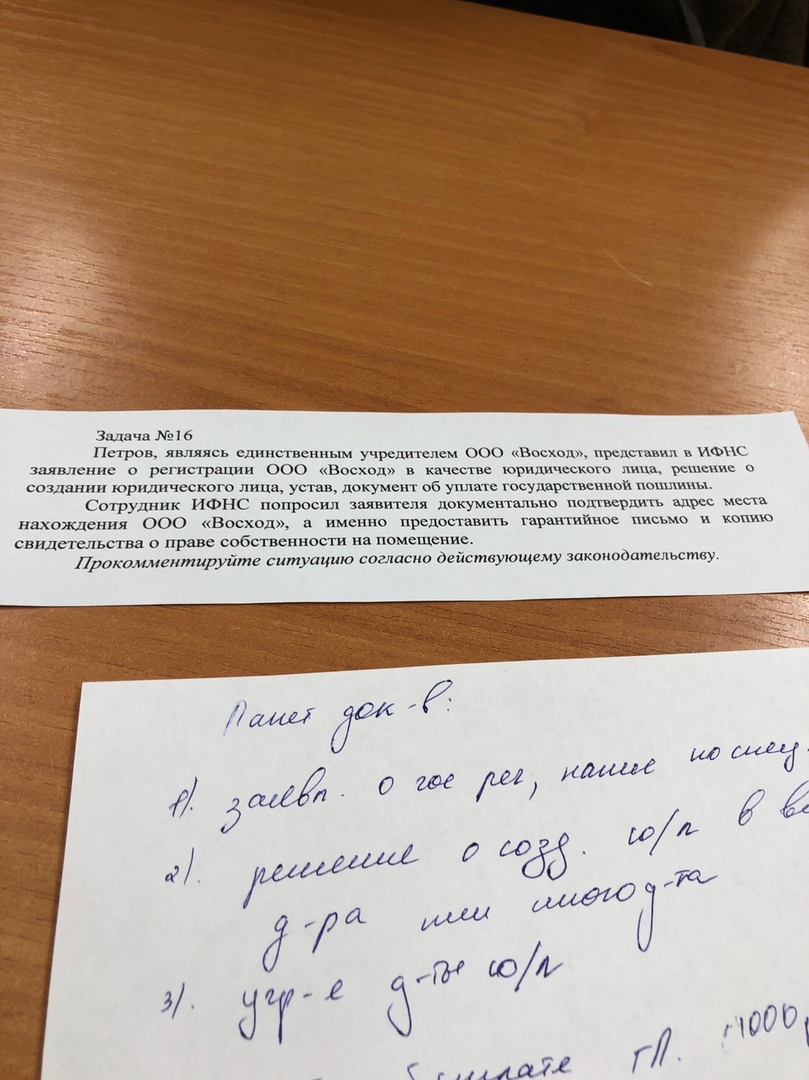 Задача №16
Петров, являясь единственным учредителем ООО «Восход», представил в ИФНС
заявление о регистрации ООО «Восход» в качестве юридического лица, решение о
создании юридического лица, устав, документ об уплате государственной пошлины.
Сотрудник ИФНС попросил заявителя документально подтвердить адрес места
нахождения ООО «Восход», а именно предоставить гарантийное письмо и копию
свидетельства о праве собственности на помещение.
Прокомментируйте ситуацию согласно действующему законодательству.
Пакет док-в:
1). заявл. о гос рег,
2). решение о созд. ю/л в
д-ра или иного д-та
3). учр-е д-ты ю/л